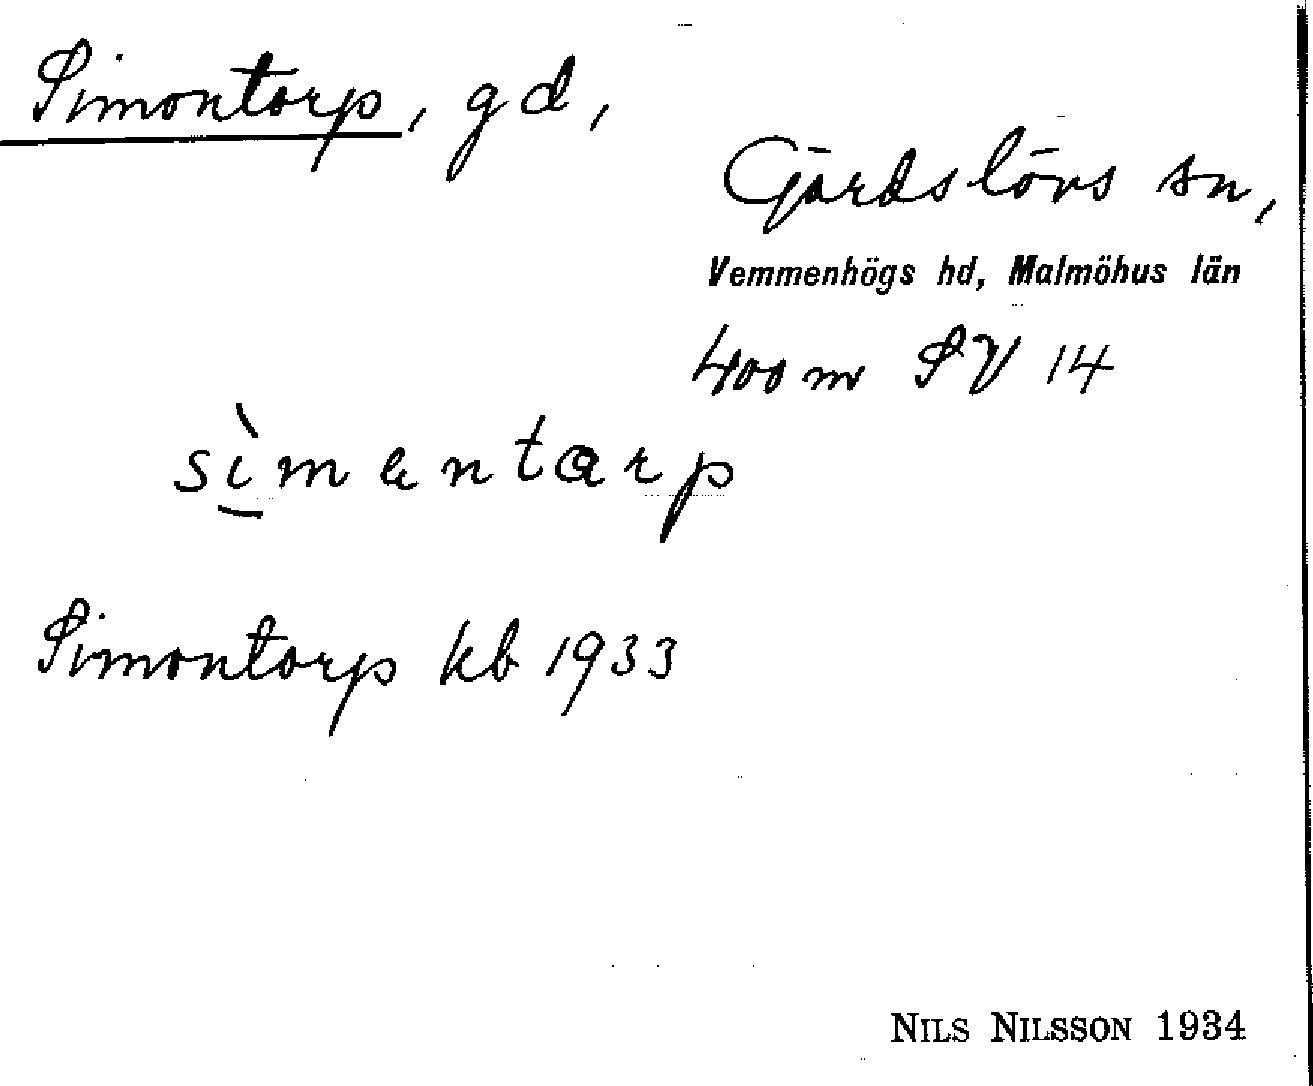 Simontorp, gd,
Gärdslövs sn,
Vemmenhögs hd, Malmöhus län
400 m SV 14
sìmentarp
Simontorp kb 1933
NILS NILSSON 1934